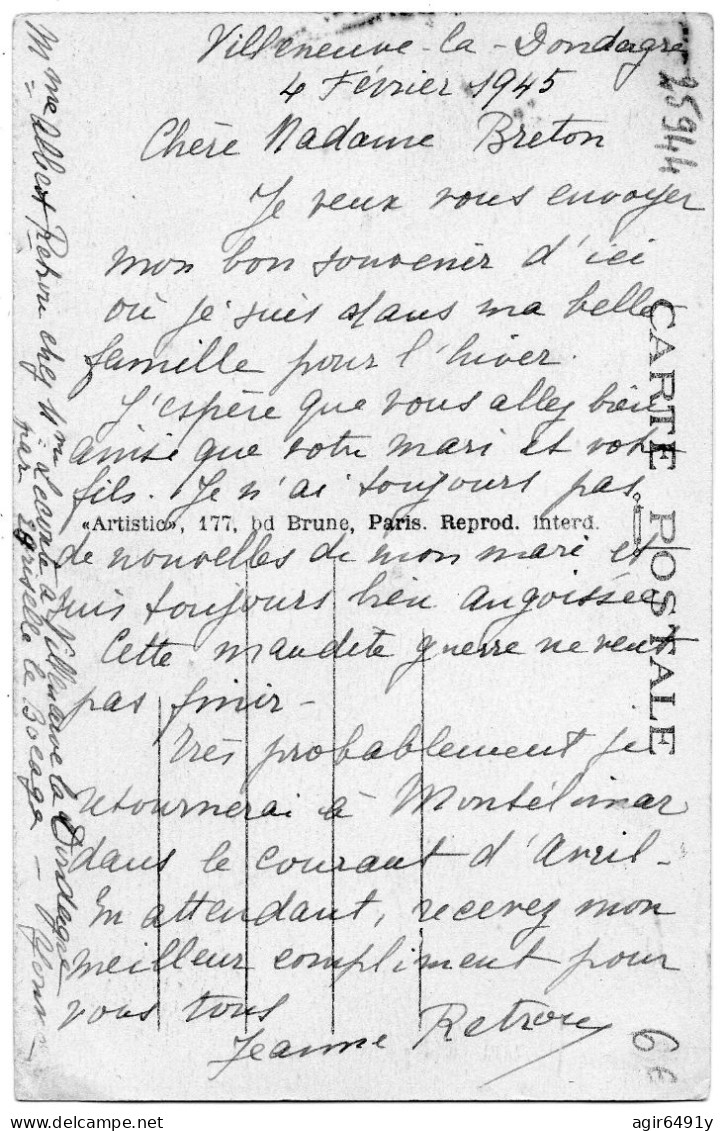 Villeneuve-la-Dondagre
4 Février 1945
Chère Madame Breton
Je veux vous envoyer
mon bon souvenir d'ici
où je suis dans ma belle
famille pour l'hiver.
J'espère que vous allez bien
ainsi que votre mari et votre
fils. Je n'ai toujours pas
«Artistic», 177, bd Brune, Paris. Reprod. interd.
de nouvelles de mon mari et
suis toujours bien angoissée
Cette maudite guerre ne veut
pas finir -
Très probablement je
retournerai à Montélimar
dans le courant d'Avril -
En attendant, recevez mon
meilleur compliment pour
vous tous
Jeanne Retrou
Mme Albert Retrou chez Mme à Villeneuve la Dondagre
par Egriselle le Bocage - Yonne -
CARTE POSTALE
25944
6€
agir6491y